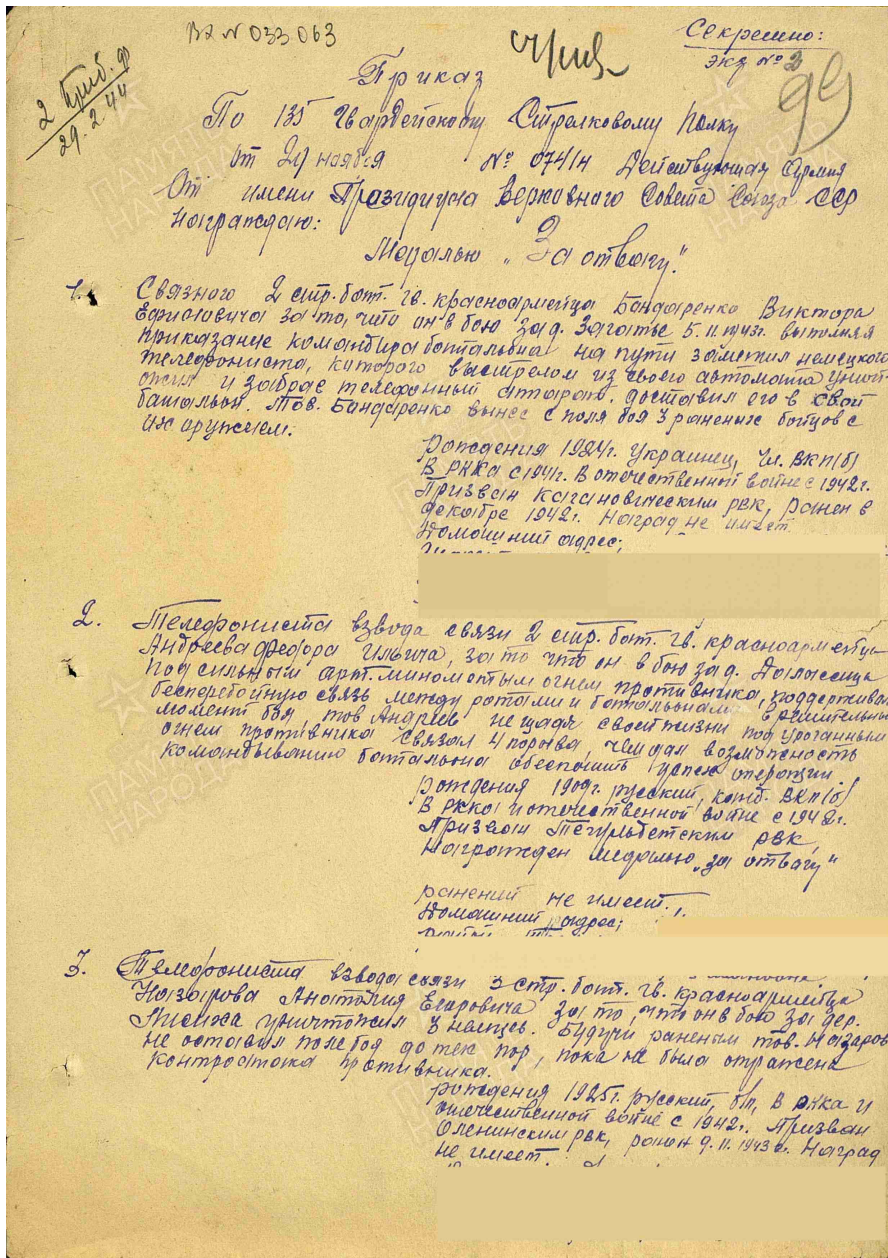 Вх № 033063
Секретно:
экз № 2
99
2 Приб. ф
29.2.44
Приказ
По 135 Гвардейскому Стрелковому Полку
От 29 ноября № 074/н Действующая Армия
От имени Президиума Верховного Совета Союза ССР
награждаю:
Медалью „За отвагу."
1. Связного 2 стр. бат. гв. красноармейца Бондаренко Виктора
за то, что он в бою за д. Загатье 5.11 выполняя
приказание командира батальона на пути заметил немецкого
телефониста, которого выстрелом из своего автомата уничт-
ожил и забрав телефонный аппарат, доставил его в свой
батальон. Тов. Бандаренко вынес с поля боя 3 раненых бойцов с
их оружием.
рождения 1924г. Украинец, чл. ВКП(б)
В РККА с 1941г. В отечественной войне с 1942г.
Призван Кагановическим рвк, ранен в
декабре 1942г. Наград не имеет.
Домашний адрес:
2. Телефониста взвода связи 2 стр. бат. гв. красноармейца
Андреева Федора Ильича, за то что он в бою за д.
под сильным арт. минометным огнем противника, поддерживал
бесперебойную связь между ротами и батальонами, в решительный
момент боя тов Андреев не щадя своей жизни под ураганным
огнем противника связал 4 порыва, чем дал возможность
командыванию батальона обеспечить успех операции
рождения 1909г. русский, канд. ВКП(б)
В РККА и отечественной войне с 1942г.
Призван Тегульдетским рвк,
Награжден медалью „за отвагу"
ранений не имеет.
Домашний адрес:
3. Телефониста взвода связи 3 стр. бат. гв. красноармейца
Назарова Анатолия Егоровича за то, что он в бою за дер.
уничтожил 3 немцев. Будучи раненым тов. Назаров
не оставил поле боя до тех пор, пока не была отражена
контратака противника.
рождения 1925г. русский, б/п, в РККА и
отечественной войне с 1942г. Призван
Оленинским рвк, ранен 9.11.1943г. Наград
не имеет.